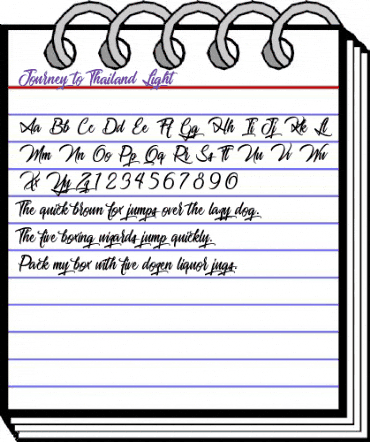 Journey to Thailand Light
Aa Bb Cc Dd Ee Ff Gg Hh Ii Jj Kk Ll
Mm Nn Oo Pp Qq Rr Ss Tt Uu Vv Ww
Xx Yy Zz 1 2 3 4 5 6 7 8 9 0
The quick brown fox jumps over the lazy dog.
The five boxing wizards jump quickly.
Pack my box with five dozen liquor jugs.